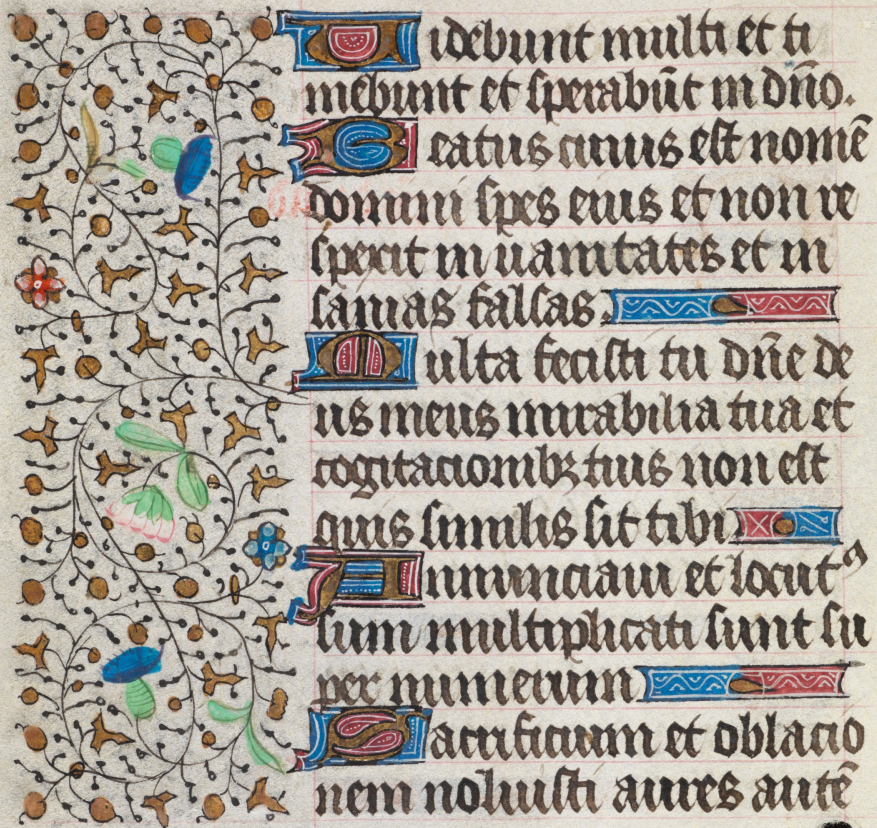 Uidebunt multi et ti
mebunt et sperabūt in dn̄o.
Beatus cuius est nomē
domini spes eius et non re
spexit in uanitates et in
sanias falsas.
Multa fecisti tu dn̄e de
us meus mirabilia tua et
cogitacionibꝫ tuis non est
quis similis sit tibi
Annunciaui et locutꝰ
sum multiplicati sunt su
per numerum
Sacrificium et oblacio
nem noluisti aures autē